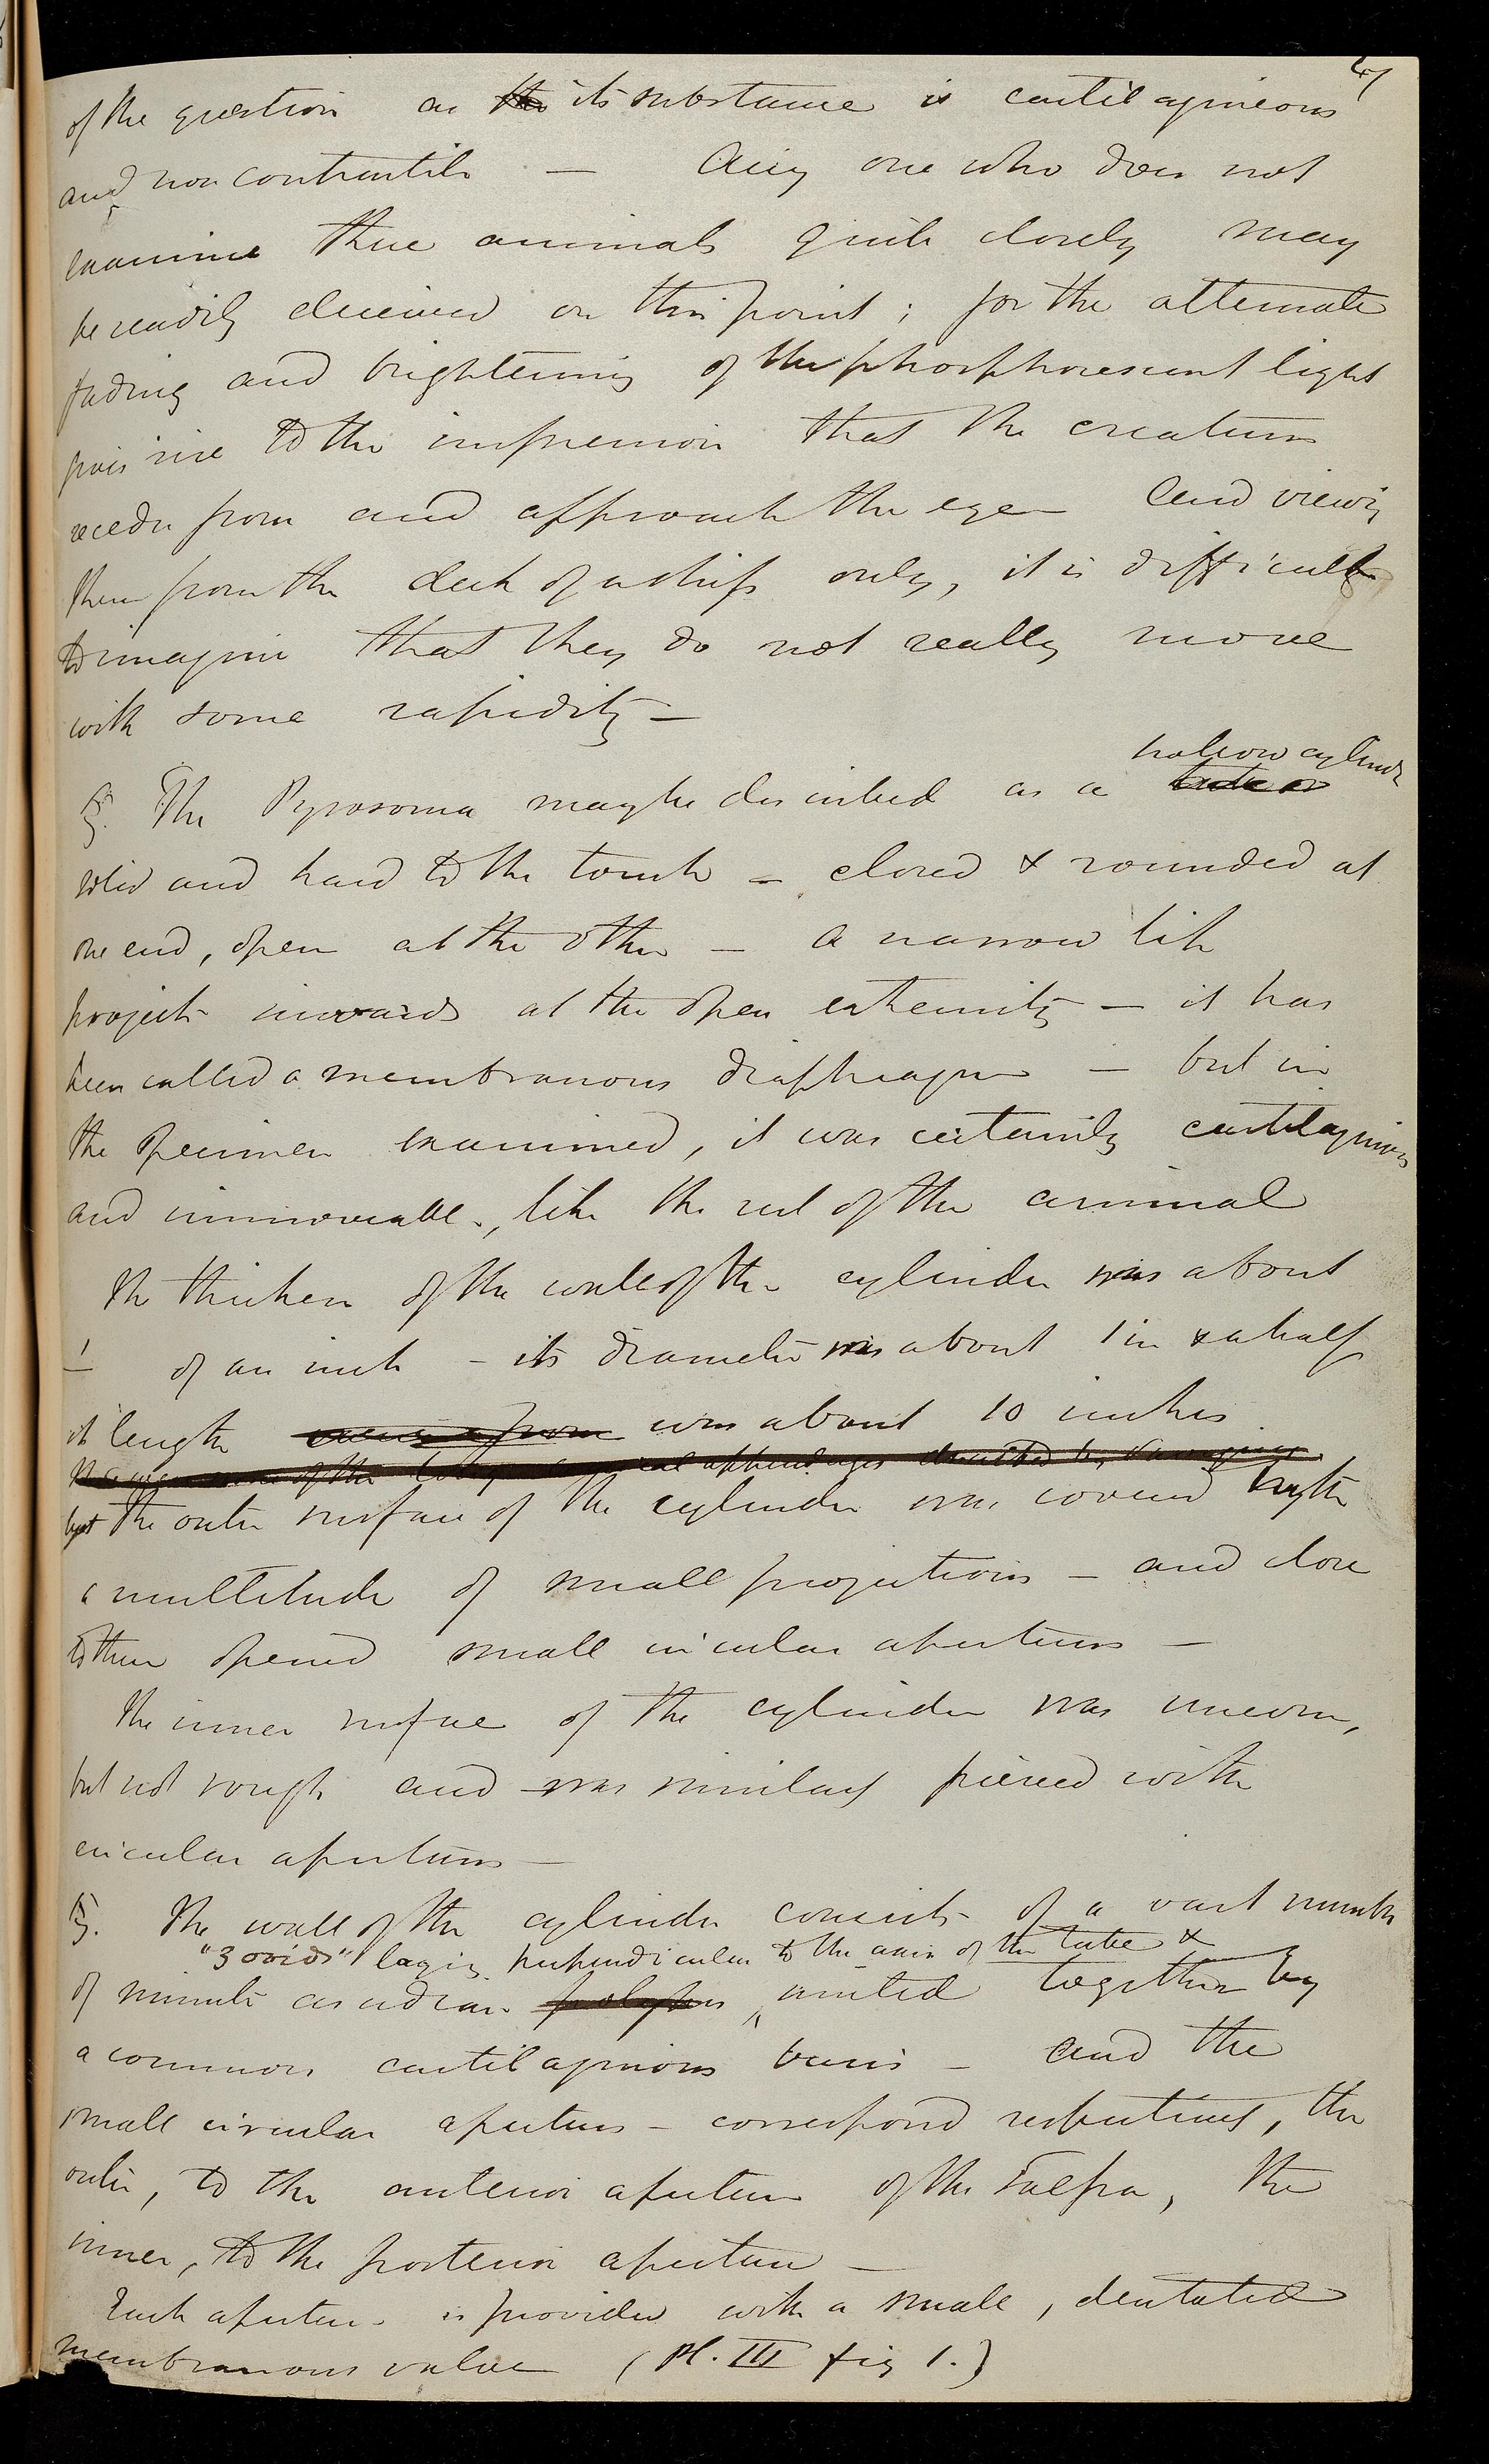 47
of the question as the its substance is cartilagineous
and non contractile — Any one who does not
examine these animals quite closely may
be readily deceived on this point; for the alternate
fading and brightening of the phosphorescent light
gives rise to the impression that the creatures
recede from and approach the eye — And viewing
them from the deck of a ship only, it is difficult
to imagine that they do not really move
with some rapidity —
hollow cylinder
§. The Pyrosoma may be described as a tube or
solid and hard to the touch — closed & rounded at
one end, open at the other — A narrow lip
projects inwards at the open extremity — it has
been called a membranous diaphragm — but in
the specimen examined, it was certainly cartilaginous
and immoveable, like the rest of the animal
The thickness of the wall of the cylinder was about
1 of an inch — its diameter was about 1 in & a half
its length was about 10 inches
of the appendages described by
but the outer surface of the cylinder was covered by the
a multitude of small projections — and close
to these opened small circular apertures —
The inner surface of the cylinder was uneven,
but not rough and was similarly pierced with
circular apertures —
§. The wall of the cylinder consists of a vast number
"zooids" laying perpendicular to the axis of the tube &
of minute ascidian united together by
a common cartilaginous basis — and the
small circular apertures — correspond respectively, the
outer, to the anterior aperture of the Salpa, the
inner, to the posterior aperture —
Each aperture is provided with a small, dentated
membranous valve (Pl. III fig 1.)